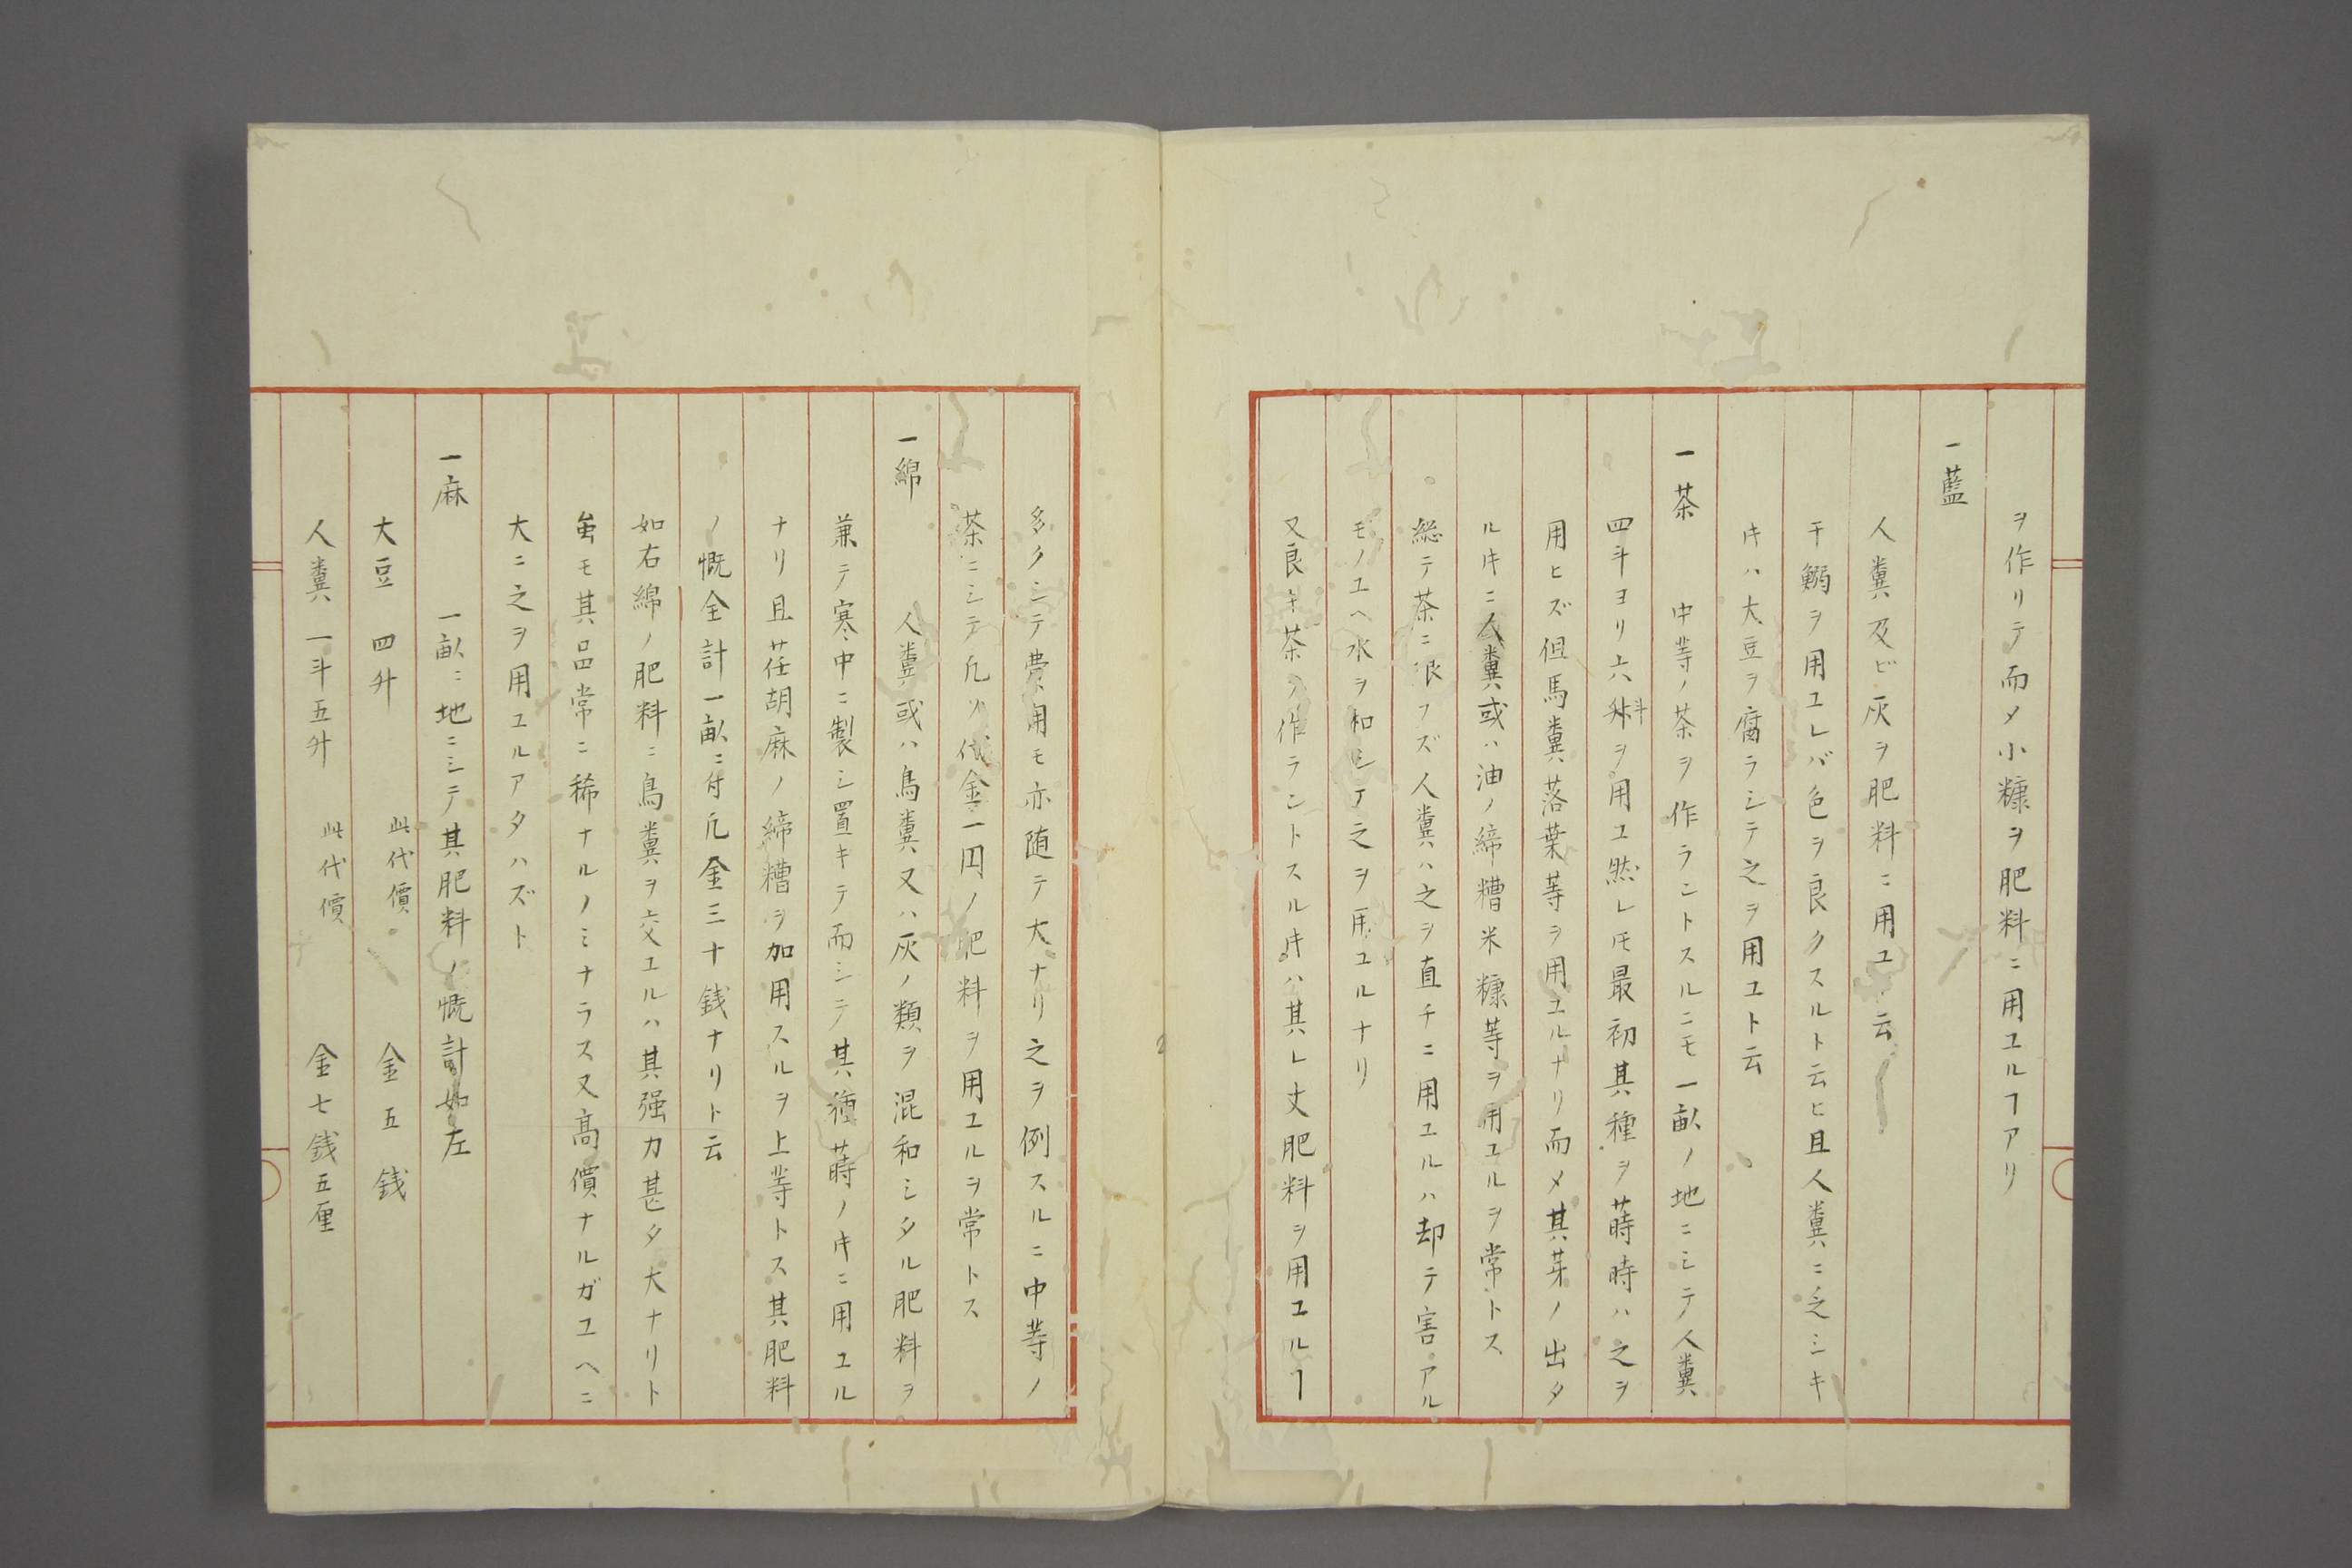 ヲ作リテ而メ小糠ヲ肥料ニ用ユルヿアリ
一藍
人糞及ビ灰ヲ肥料ニ用ユト云
干鰯ヲ用ユレバ色ヲ良クスルト云ヒ且人糞ニ乏シキ
片ハ大豆ヲ腐ラシテ之ヲ用ユト云
一茶 中等ノ茶ヲ作ラントスルニモ一畝ノ地ニシテ人糞
四斗ヨリ六斗ヲ用ユ然レ𪜈最初其種ヲ蒔時ハ之ヲ
用ヒズ但馬糞落葉等ヲ用ユルナリ而メ其芽ノ出タ
ル片ニ人糞或ハ油ノ締糟米糠等ヲ用ユルヲ常トス
総テ茶ニ限ラズ人糞ハ之ヲ直チニ用ユルハ却テ害アル
モノユヘ水ヲ和シテ之ヲ用ユルナリ
又良キ茶ヲ作ラントスル片ハ其レ丈肥料ヲ用ユルヿ
多クシテ費用モ亦随テ大ナリ之ヲ例スルニ中等ノ
茶ニシテ凡ソ代金一円ノ肥料ヲ用ユルヲ常トス
一綿 人糞或ハ鳥糞又ハ灰ノ類ヲ混和シタル肥料ヲ
兼テ寒中ニ製シ置キテ而シテ其種蒔ノ片ニ用ユル
ナリ且荏胡麻ノ締糟ヲ加用スルヲ上等トス其肥料
ノ慨全計一畝ニ付凡金三十銭ナリト云
如右綿ノ肥料ニ鳥糞ヲ交ユルハ其强力甚タ大ナリト
虽モ其品常ニ稀ナルノミナラス又高價ナルガユヘニ
大ニ之ヲ用ユルアタハズト
一麻 一畝ニ地ニシテ其肥料ノ慨計如左
大豆 四升 此代價 金五銭
人糞 一斗五升 此代價 金七銭五厘